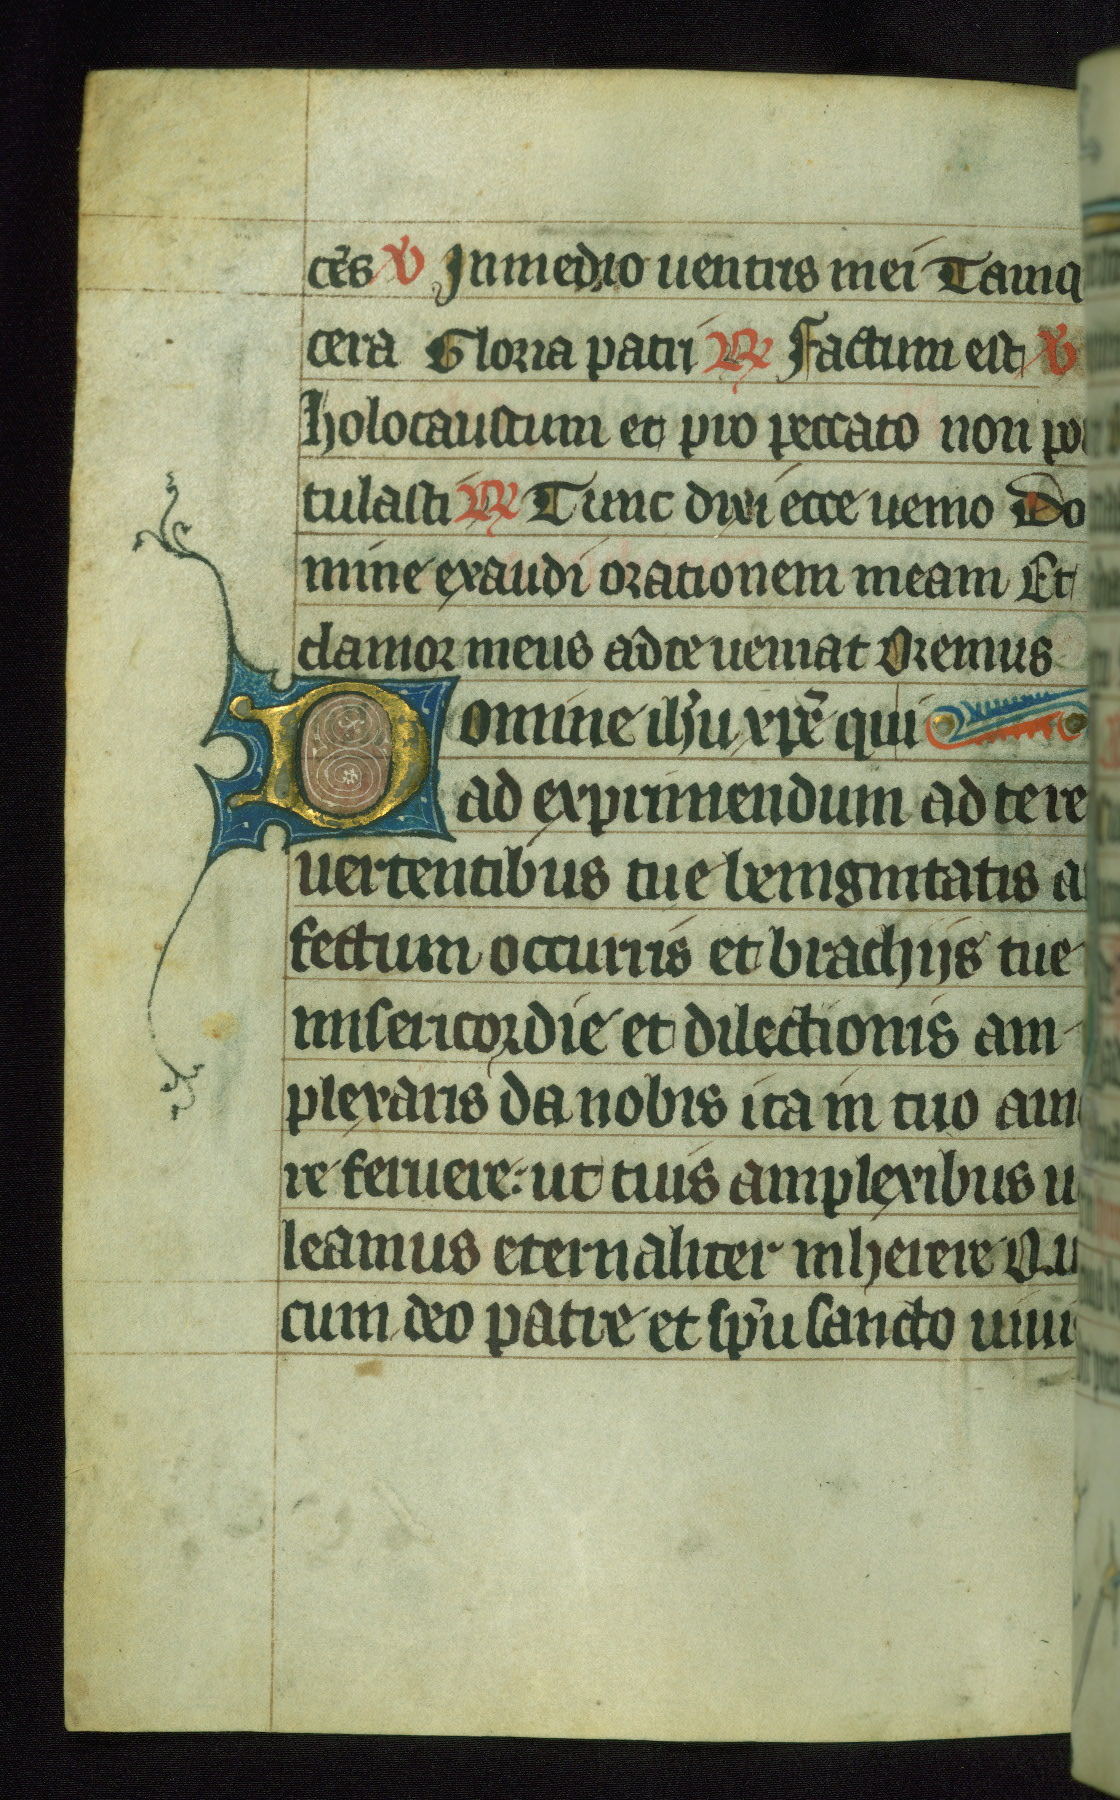 cēs V In medio uentris mei Tamq
cera Gloria patri R Factum est V
holocaustum et pro peccato non po
tulasti R Tunc dixi ecce uenio Do
mine exaudi orationem meam Et
clamor meus ad te ueniat Oremus
Domine ihu xpē qui
ad exprimendum ad te re
uertentibus tue benignitatis a
fectum occurris et brachijs tue
misericordie et dilectionis am
plexaris da nobis ita in tuo amo
re feruere: ut tuis amplexibus u
leamus eternaliter inherere Qui
cum deo patre et spū sancto uiui